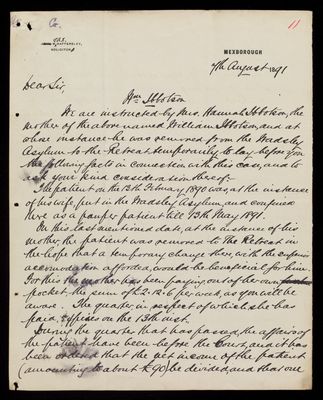 Co.
11
JOHN W. HATTERSLEY,
SOLICITOR.
MEXBOROUGH
7th August 1891
Dear Sir,
Wm Ibbotson
We are instructed by Mrs. Hannah Ibbotson, the
mother of the above named William Ibbotson, and at
whose instance he was removed from the Wadsley
Asylum to the Retreat temporarily to lay before you
the following facts in connection with this case, and to
ask your kind consideration thereof:-
The patient on the 13th February 1890 was, at the instance
of his wife put in the Wadsley Asylum, and confined
there as a pauper patient till 13th May 1891.
On this last mentioned date, at the instance of his
mother, the patient was removed to The Retreat in
the hope that a temporary change there, with the superior
accommodation afforded, would be beneficial for him.
For this the mother has been paying out of her own
pocket, the sum of £2.12.6 per week, as you will be
aware. The quarter in respect of which she has
paid, expires on the 13th inst.
During the quarter that has passed, the affairs of
the patient have been before the Court, and it has
been ordered that the net income of the patient
(amounting to about £90) be divided, and that one